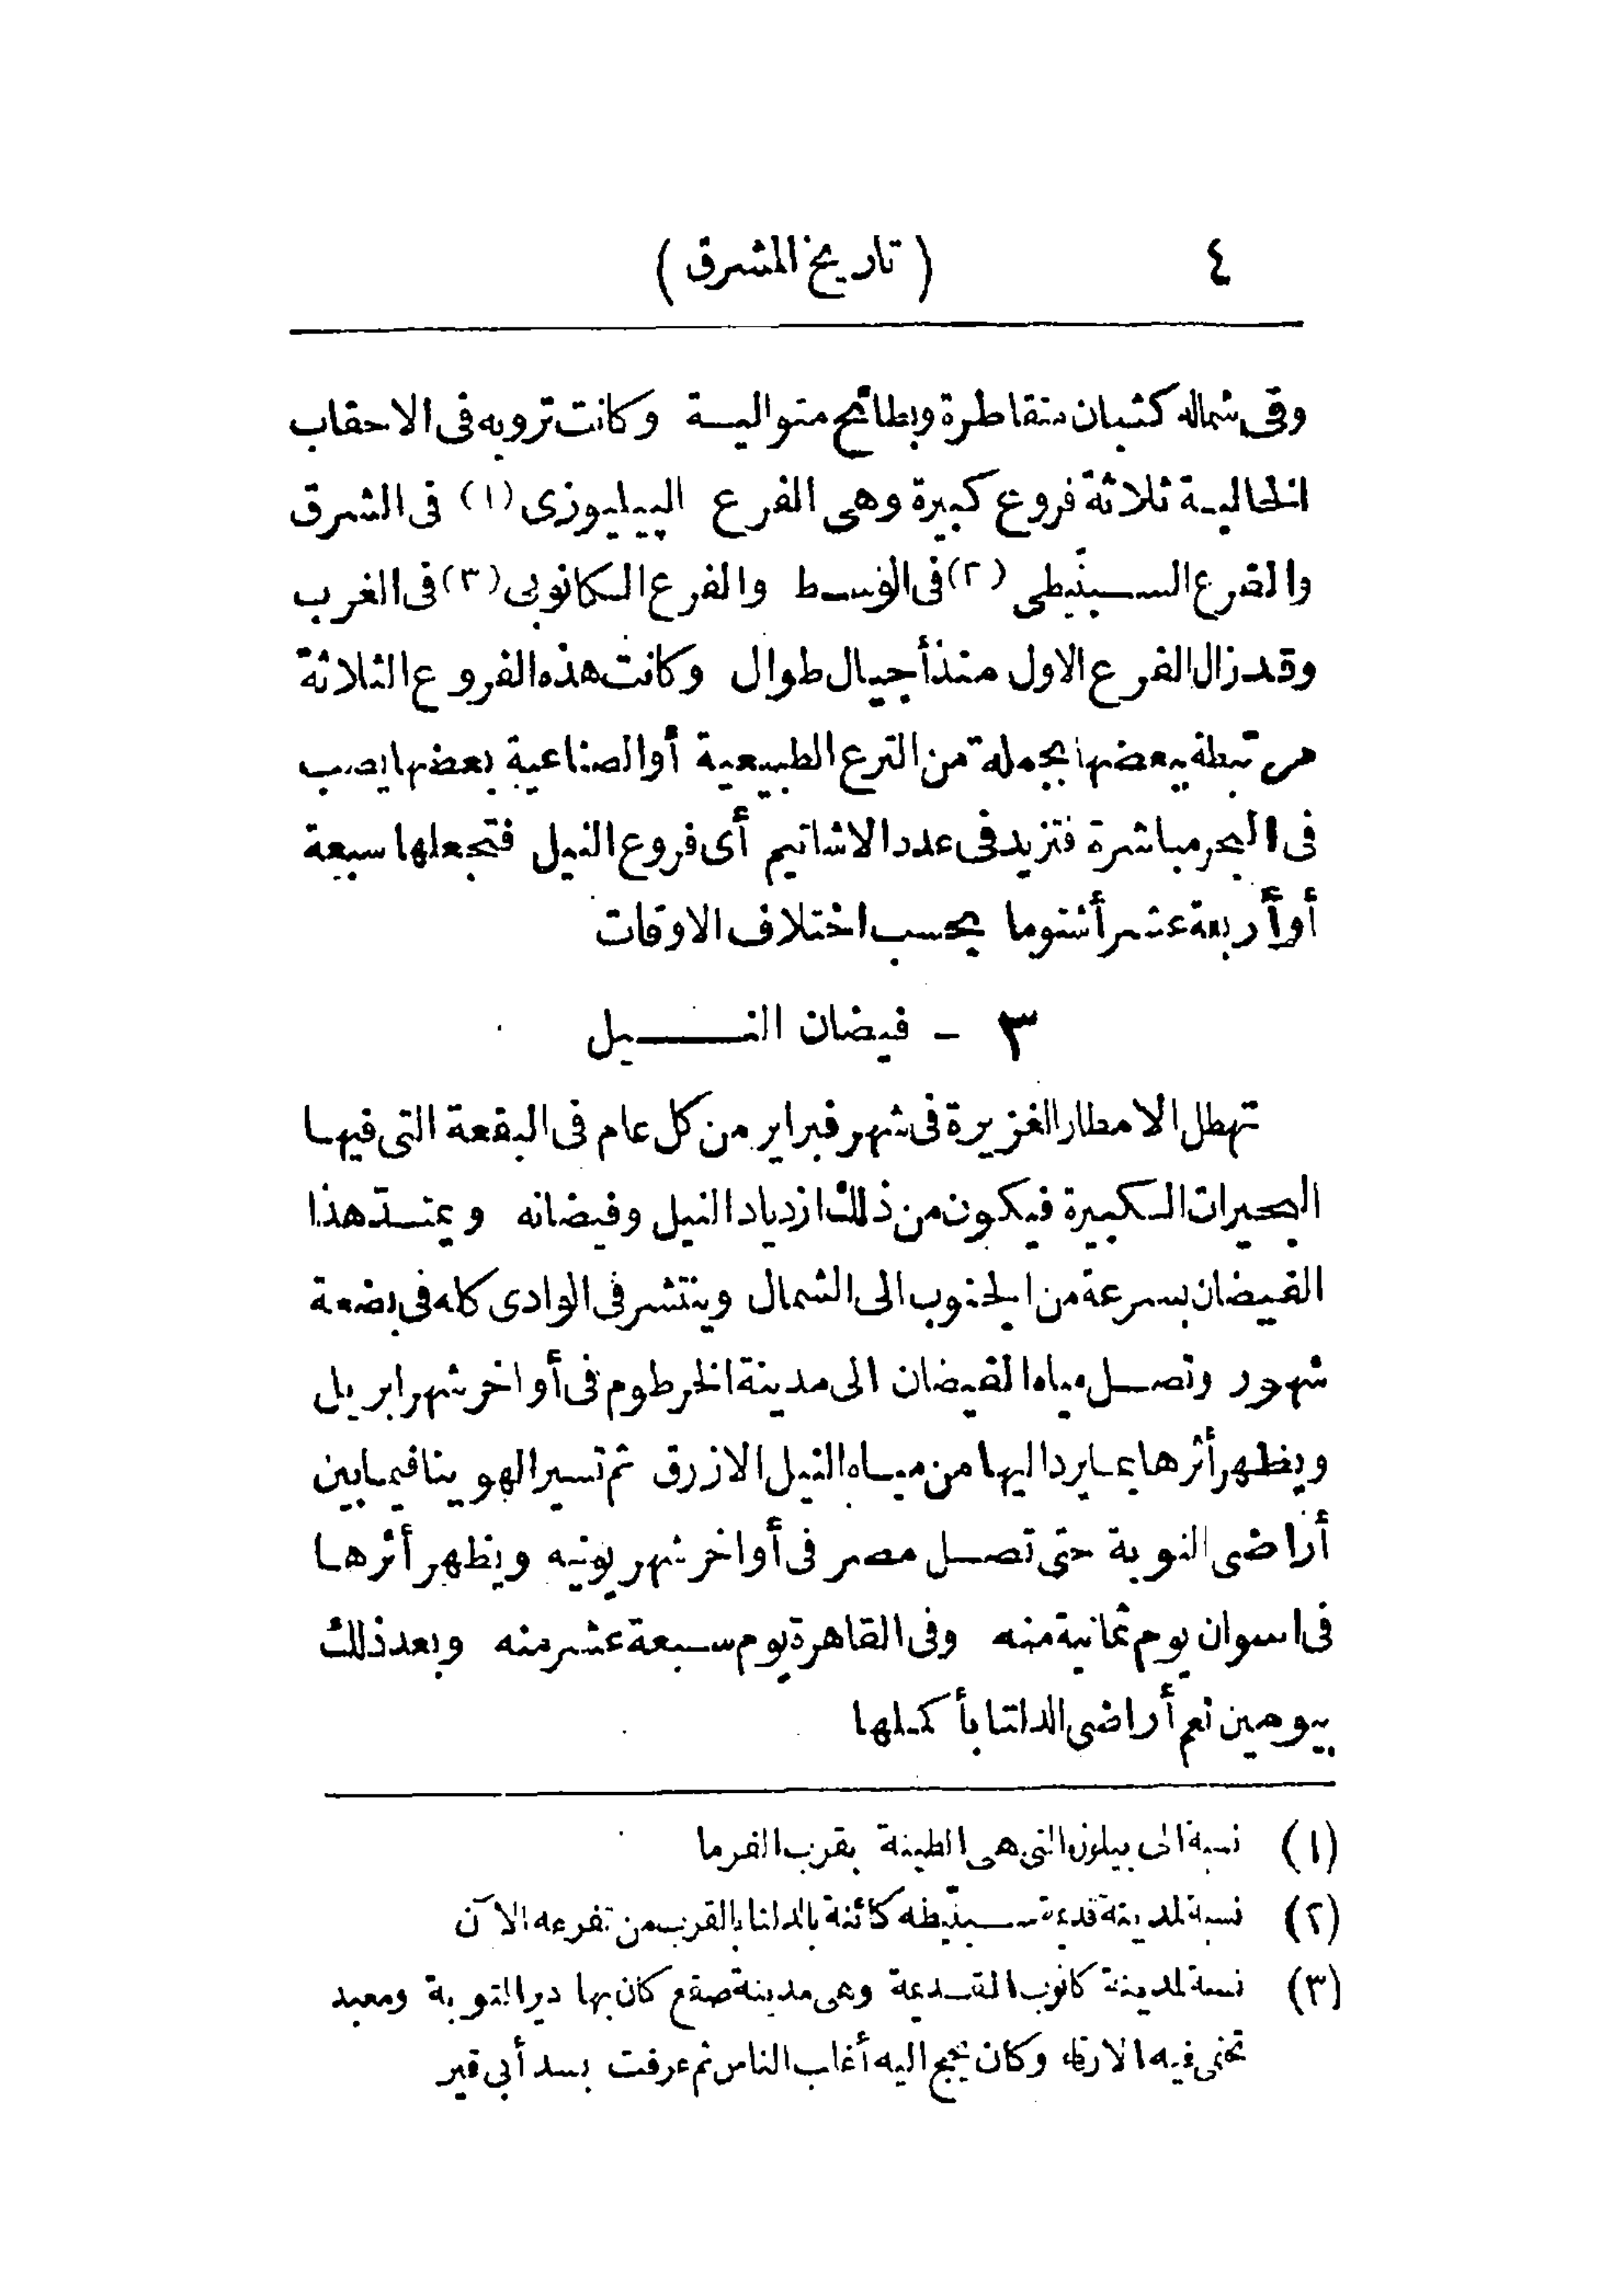 ٤ ( تاريخ المشرق )
وفى شماله كثبان متقاطرة وبطائح متوالية وكانت ترويه فى الاحقاب
الخالية ثلاثة فروع كبيرة وهى الفرع البيليوزى (١) فى الشرق
والفرع السبنّيطى (٢) فى الوسط والفرع الكانوبى (٣) فى الغرب
وقد زال الفرع الاول منذ أجيال طوال وكانت هذه الفروع الثلاثة
مرتبطة ببعضها بجملة من الترع الطبيعية أو الصناعية بعضها يصب
فى البحر مباشرة فتزيد فى عدد الاشاتيم أى فروع النيل فتجعلها سبعة
أو أربعة عشر أشتوما بحسب اختلاف الاوقات
٣ - فيضان النيل
تهطل الامطار الغزيرة فى شهر فبراير من كل عام فى البقعة التى فيها
البحيرات الكبيرة فيكون من ذلك ازدياد النيل وفيضانه ويمتد هذا
الفيضان بسرعة من الجنوب الى الشمال وينتشر فى الوادى كله فى بضعة
شهور وتصل مياه الفيضان الى مدينة الخرطوم فى أواخر شهر ابريل
ويظهر أثرها بما يرد اليها من مياه النيل الازرق ثم تسير الهوينا فيما بين
أراضى النوبة حتى تصل مصر فى أواخر شهر يونيه ويظهر أثرها
فى اسوان يوم ثمانية منه وفى القاهرة يوم سبعة عشر منه وبعد ذلك
بيومين تعم أراضى الدلتا بأكملها
(١) نسبة الى بيلوز التى هى الطينة بقرب الفرما
(٢) نسبة لمدينة قديمة سبنّيطه كائنة بالدلتا بالقرب من تفرعه الآن
(٣) نسبة لمدينة كانوب القديمة وهى مدينة صقع كان بها دير التوبة ومعبد
تخنى فيه الارقاء وكان يحج اليه أغلب الناس ثم عرفت بسد أبى قير